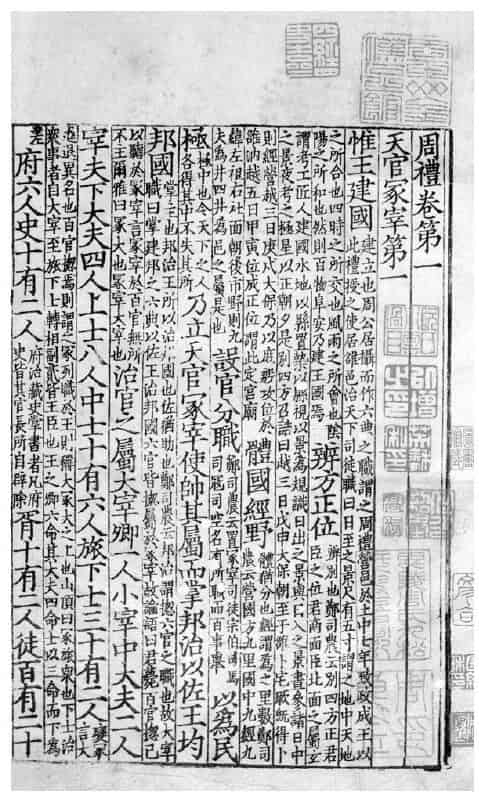 周禮卷第一
天官冢宰第一
惟王建國
建立也周公居攝而作六典之職謂之周禮營邑於土中七年致政成王以
此禮授之使居雒邑治天下司徒職曰日至之景尺有五寸謂之地中天地
之所合也四時之所交也風雨之所會也陰
陽之所和也然則百物阜安乃建王國焉
辨方正位
辨別也鄭司農云別四方正君
臣之位君南面臣北面之屬玄
謂考工匠人建國水地以縣置槷以縣視以景為規識日出之景與日入之景晝參諸日中
之景夜考之極星以正朝夕是別四方召誥曰越三日戊申大保朝至于雒卜宅厥既得卜
則經營越三日庚戌大保乃以庶殷攻位於
雒汭越五日甲寅位成正位謂此定宮廟
體國經野
體猶分也經謂為之里數鄭司
農云營國方九里國中九經九
緯左祖右社面朝後市野則九
夫為井四井為邑之屬是也
設官分職
鄭司農云置冢宰司徒宗伯司馬
司寇司空各有所職而百事舉
以為民
極
極中也令天下之人
各得其中不失其所
乃立天官冢宰使帥其屬而掌邦治以佐王均
邦國
掌主也邦治王所以治邦國也佐猶助也鄭司農云邦治謂揔六官之職也故大宰
職曰掌建邦之六典以佐王治邦國六官皆揔屬於冢宰故論語曰君薨百官揔己
以聽於冢宰言冢宰於百官無所
不主爾雅曰冢大也冢宰大宰也
治官之屬大宰卿一人小宰中大夫二人
宰夫下大夫四人上士八人中士十有六人旅下士三十有二人
變冢
言大
進退異名也百官揔焉則謂之冢列職於王則稱大冢大之上也山頂曰冢旅衆也下士治
衆事者自大宰至旅下士轉相副貳皆王臣也王之卿六命其大夫四命士以三命而下為
差
府六人史十有二人
府治藏史掌書者凡府
史皆其官長所自辟除
胥十有二人徒百有二十